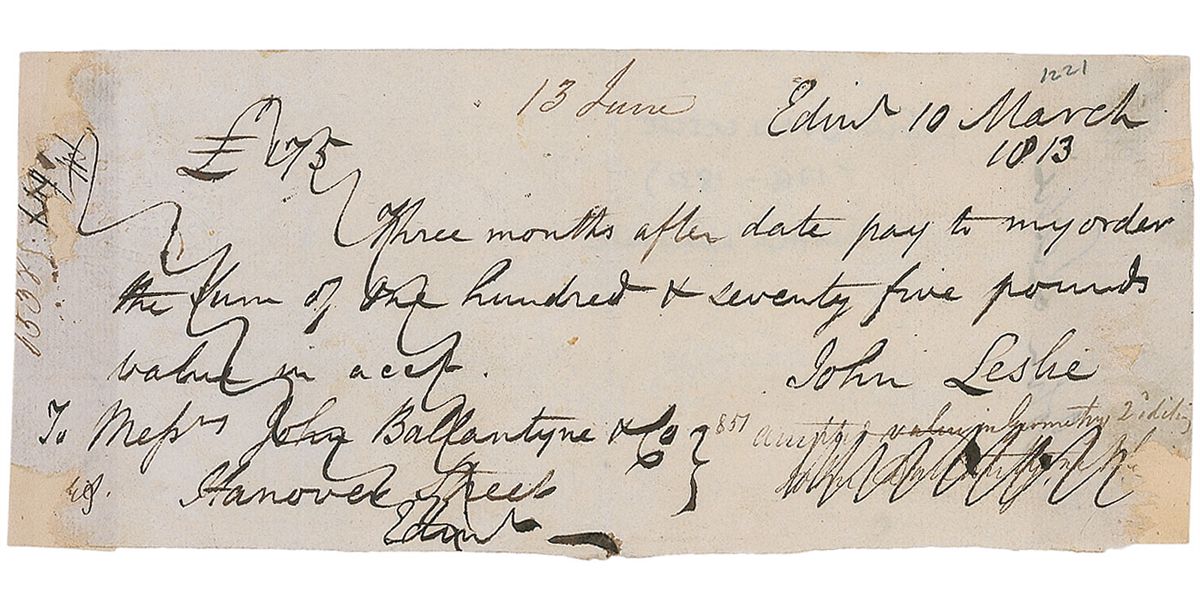 1221
13 June
Edinr 10 March
1813
£175
Three months after date pay to my order
the sum of One hundred & seventy five pounds
value in acct.
John Leslie
To Messrs John Ballantyne & Co
Hanover Street
Edinr
851
accepted value in Geometry 2d edition
John Ballantyne & Co